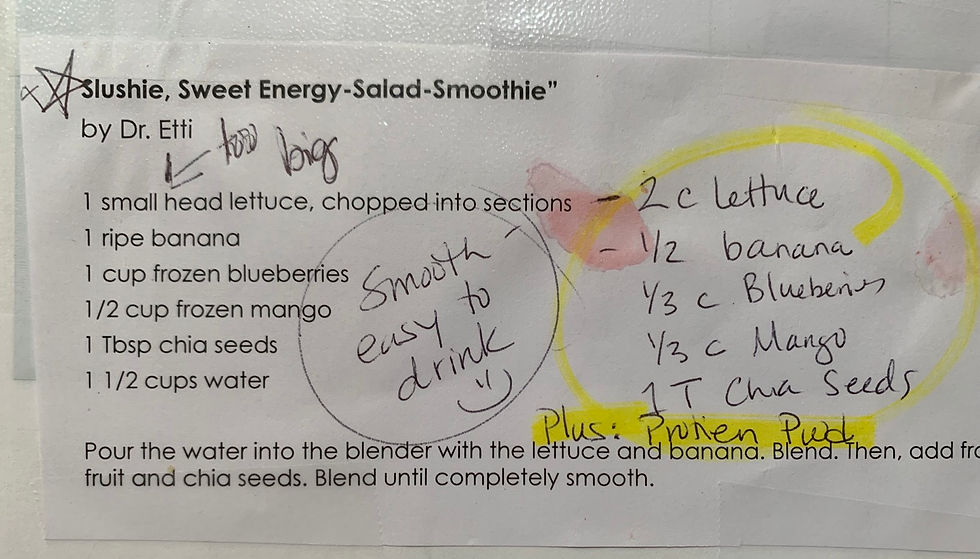 Slushie, Sweet Energy-Salad-Smoothie”
by Dr. Etti
too big
1 small head lettuce, chopped into sections
1 ripe banana
1 cup frozen blueberries
1/2 cup frozen mango
1 Tbsp chia seeds
1 1/2 cups water
Smooth -
easy to
drink
- 2 c lettuce
- 1/2 banana
1/3 c. Blueberries
1/3 c Mango
1 T Chia Seeds
Plus: Protien Pwd
Pour the water into the blender with the lettuce and banana. Blend. Then, add fro
fruit and chia seeds. Blend until completely smooth.